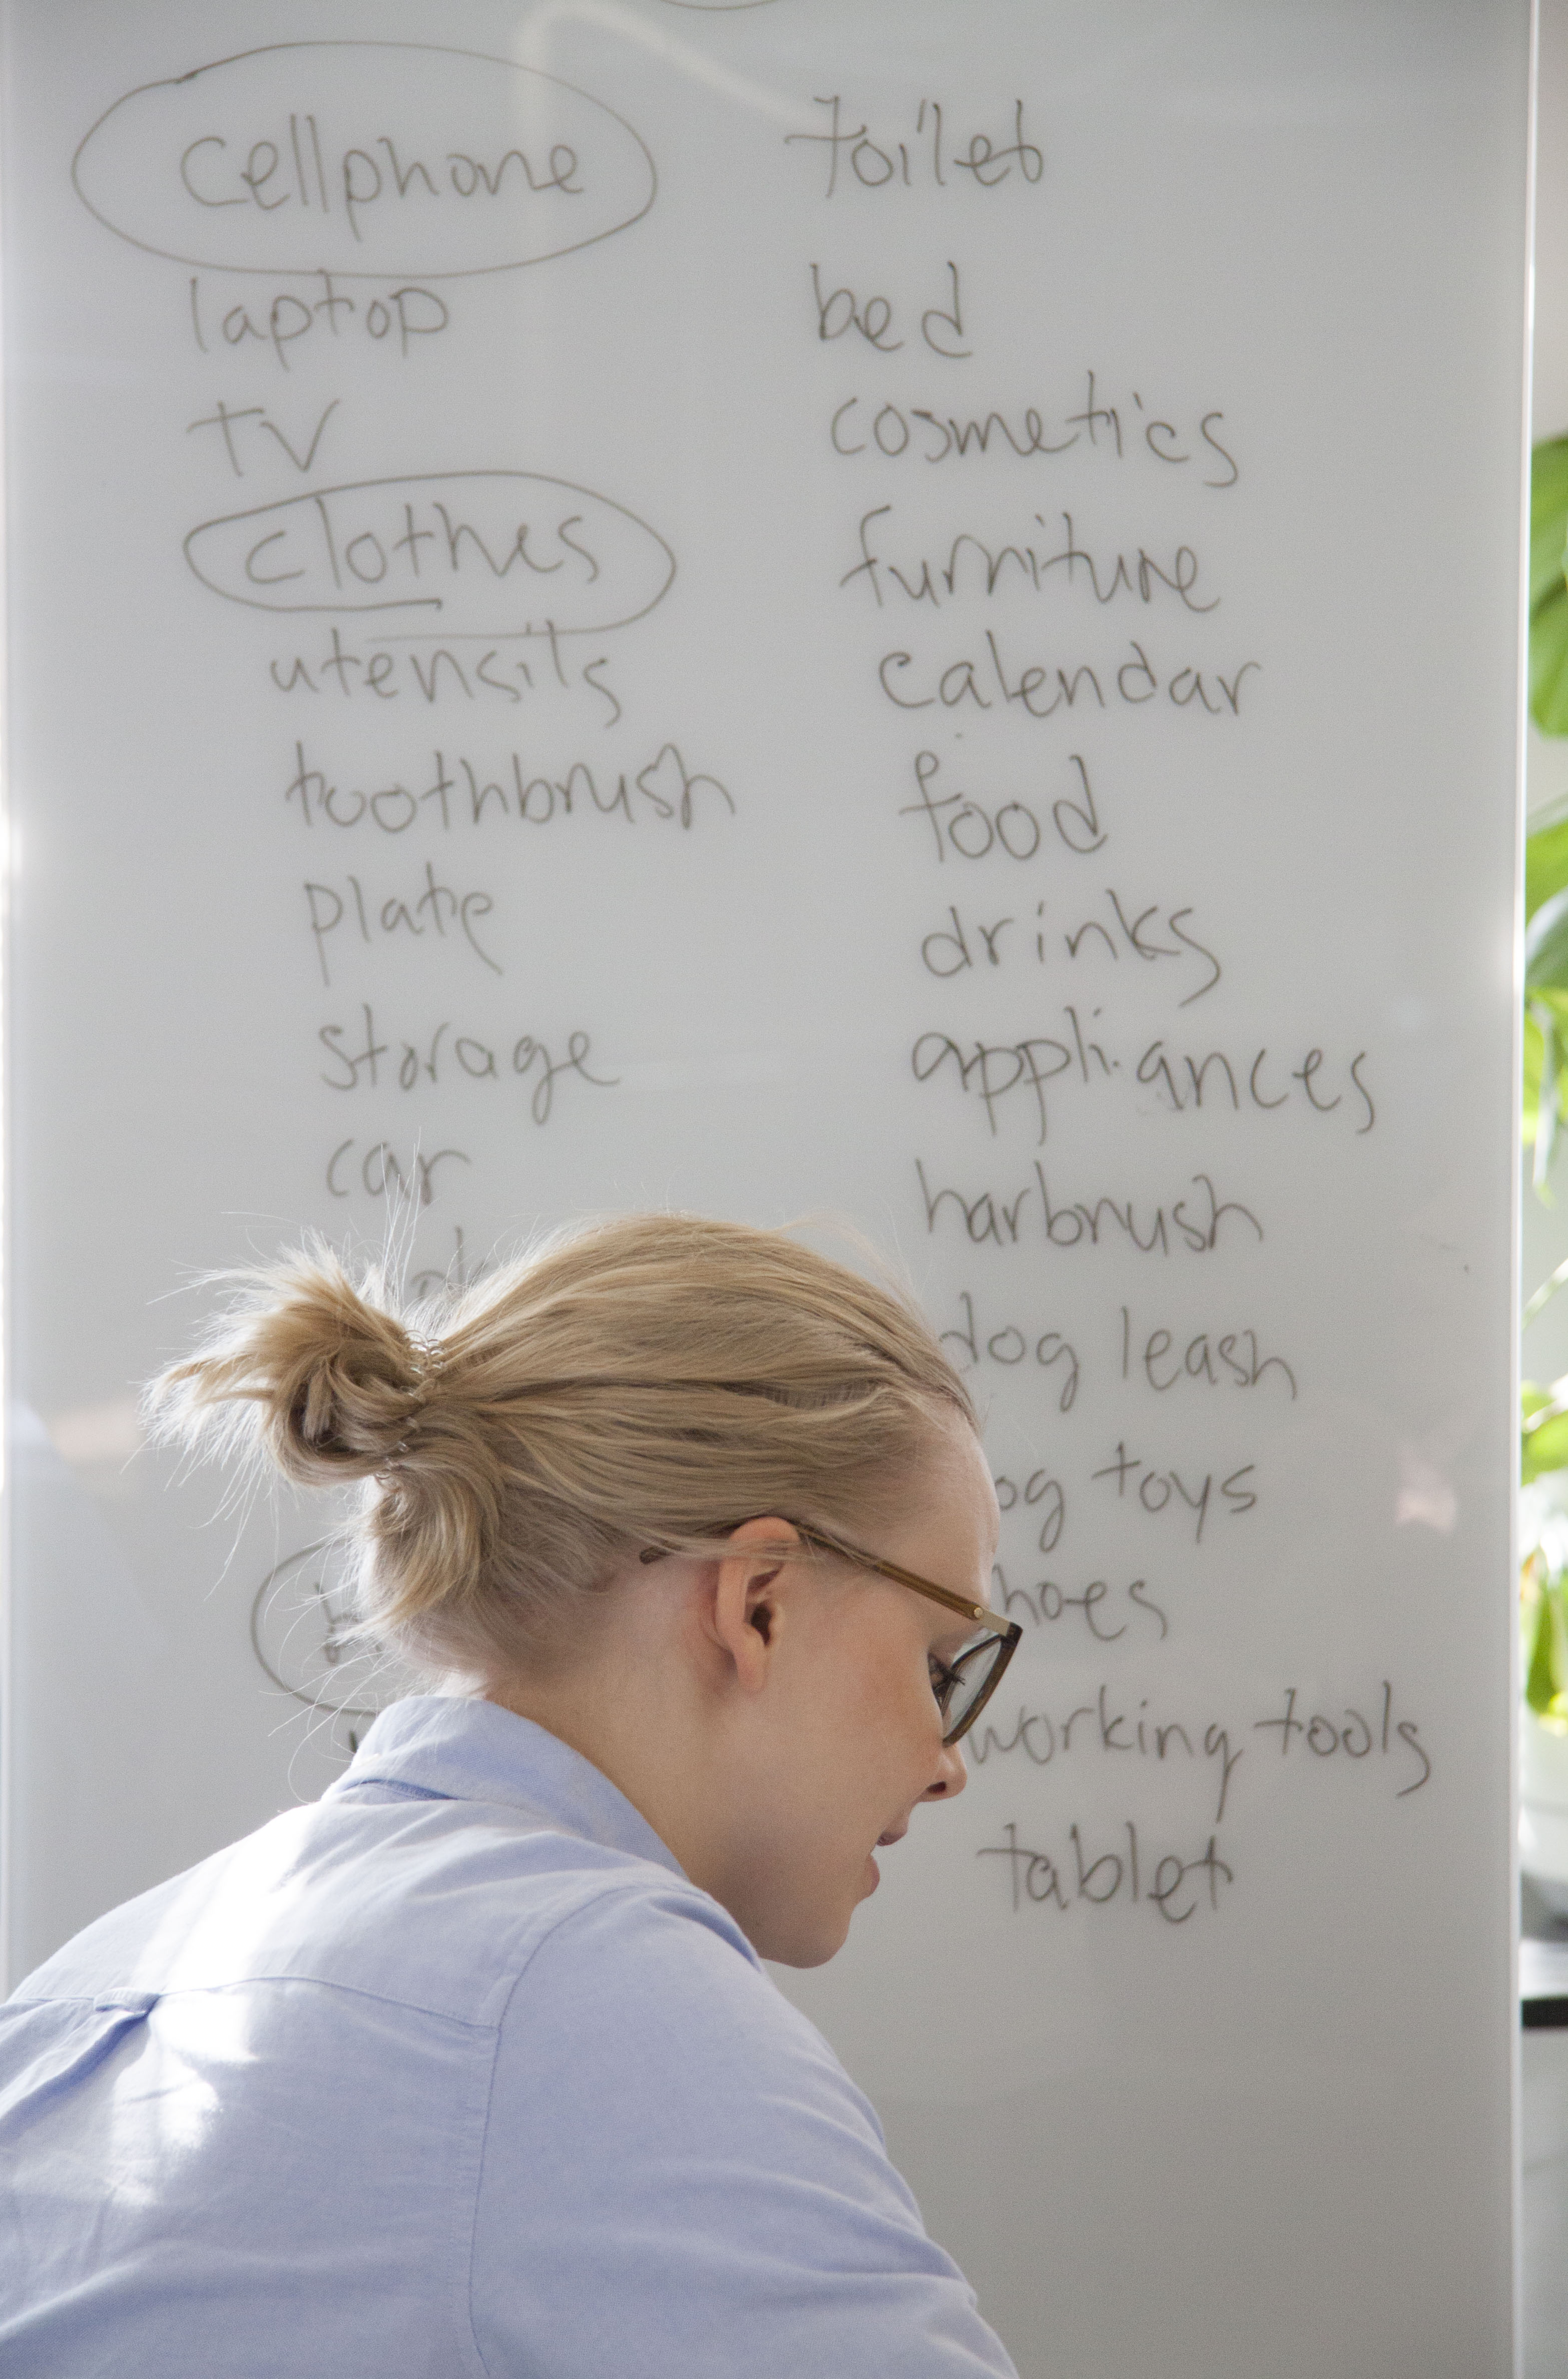 cellphone
laptop
TV
clothes
utensils
toothbrush
plate
storage
car
toilet
bed
cosmetics
furniture
calendar
food
drinks
appliances
harbrush
dog leash
toys
working tools
tablet